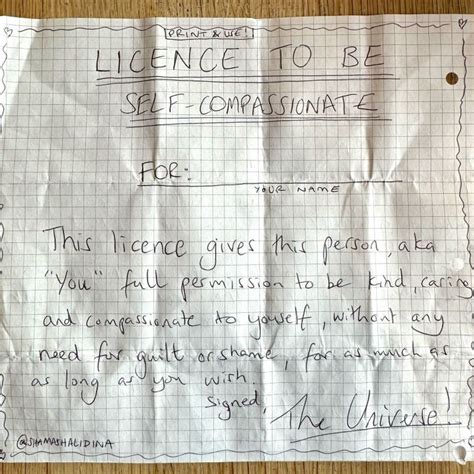 PRINT & USE!
LICENCE TO BE
SELF-COMPASSIONATE
FOR:
YOUR NAME
This licence gives this person, aka
"You" full permission to be kind, caring
and compassionate to yourself, without any
need for guilt or shame, for as much as
as long as you wish.
Signed,
The Universe!
@SHAMASHALIDINA